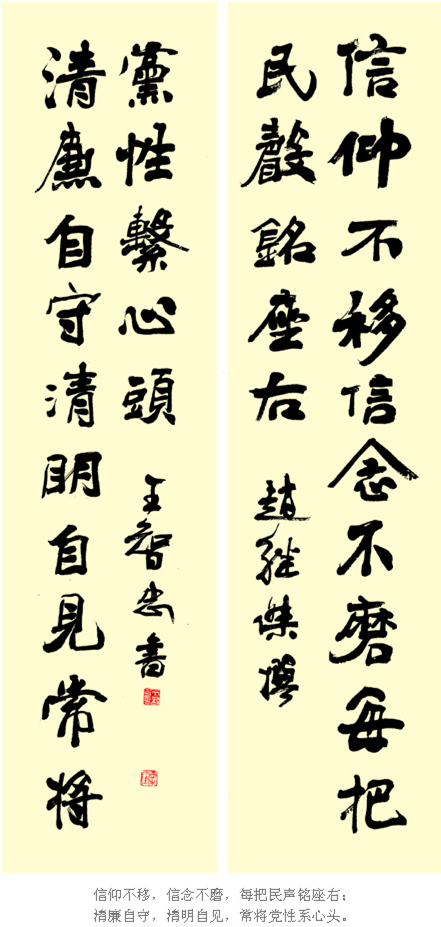 信仰不移信念不磨每把
民聲銘座右
趙継傑撰
清廉自守清明自見常將
黨性繫心頭
王智忠書
信仰不移，信念不磨，每把民声铭座右；
清廉自守，清明自见，常将党性系心头。